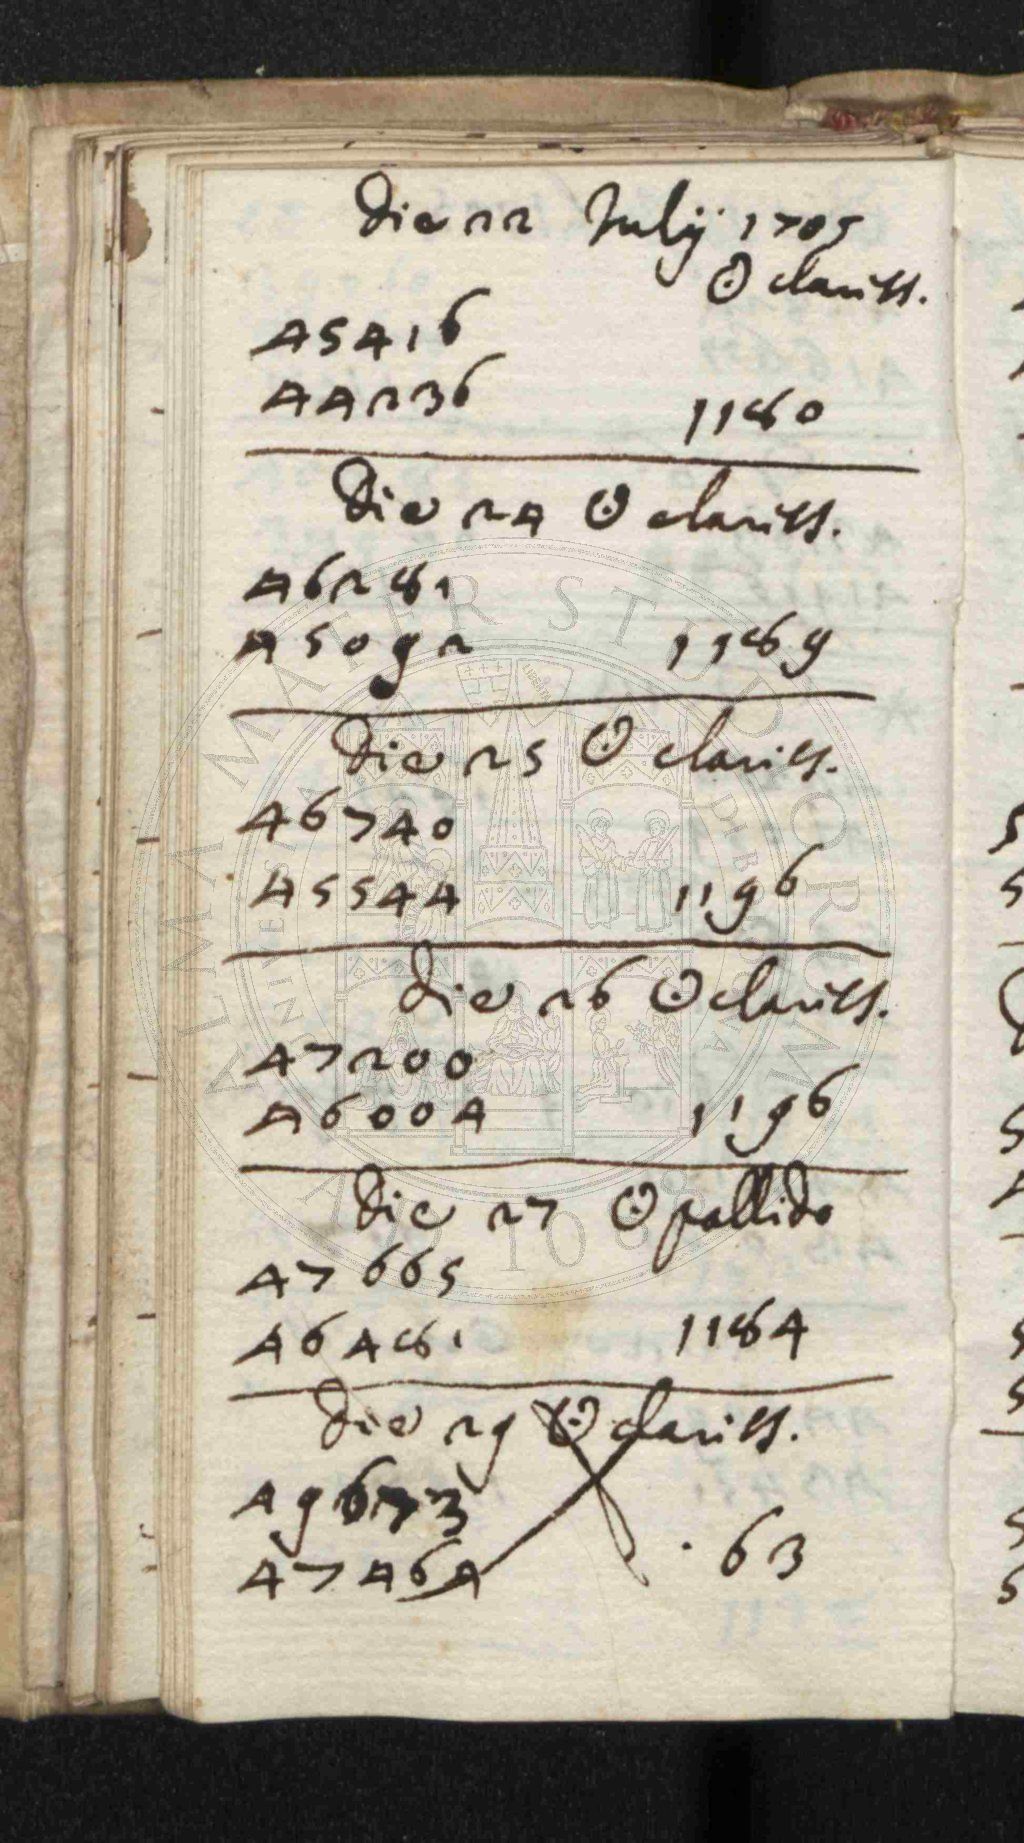 Die 22 Julij 1705
☉ clariss.
45416
44236 1180
Die 24 ☉ clariss.
46281
45092 1189
Die 25 ☉ clariss.
46740
45544 1196
Die 26 ☉ clariss.
47200
46004 1196
Die 27 ☉ pallido
47665
46481 1184
Die 29 ☉ clariss.
47464 . 63
ALMA MATER STUDIORUM
A.D. 1088